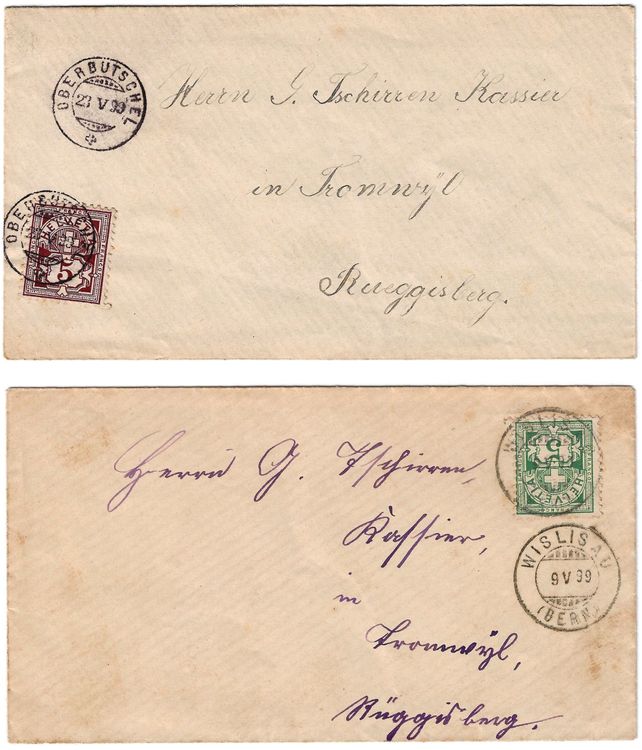 OBERBÜTSCHEL
23 V 99
Herrn G. Tschirren Kassier
in Tromwyl
Rueggisberg.
FRANCO
HELVETIA
5
Herrn G. Tschirren,
Kassier,
in
Tromwÿl,
Rüggisberg.
FRANCO
HELVETIA
5
WISLISAU
9 V 99
(BERN)